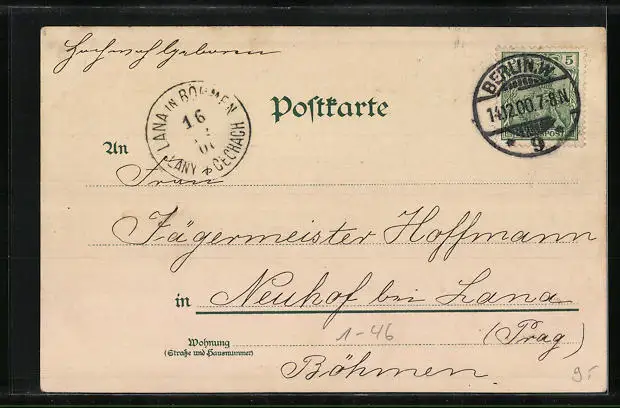 Hochwohlgeboren
5
BERLIN.W.
14.12.00.7-8.N
* 9
LANA IN BÖHMEN
16
LANY * ČECHÁCH
Postkarte
An
Frau
Jägermeister Hoffmann
in Neuhof bei Lana
1-46
(Prag)
Wohnung
(Straße und Hausnummer)
Böhmen.
9.-